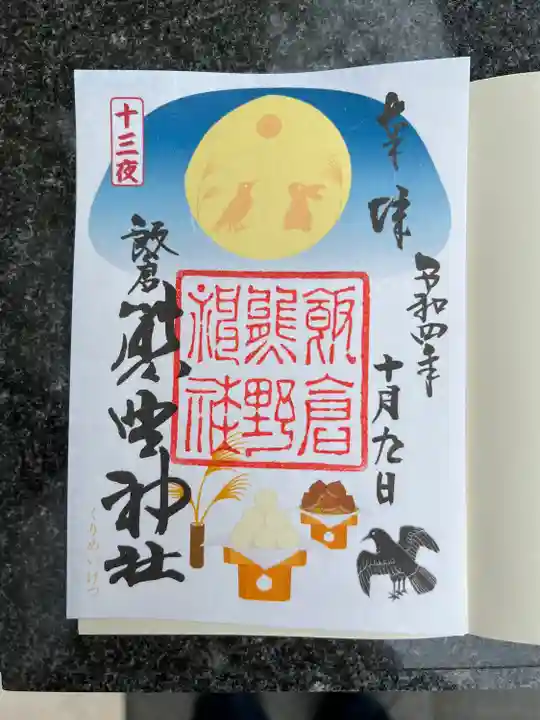 奉拝
令和四年
十月九日
飯倉
熊野
神社
十三夜
飯倉
熊野神社
くりめいげつ